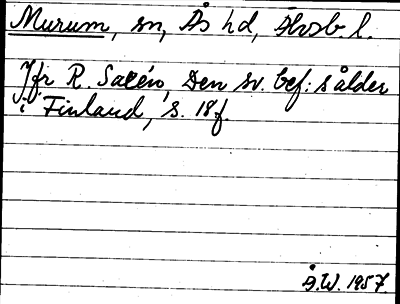 Murum, sn, Ås hd, Älvsb l.
Jfr R. Saxén, Den sv. bef:s ålder
i Finland, s. 18f.
Å.W. 1957